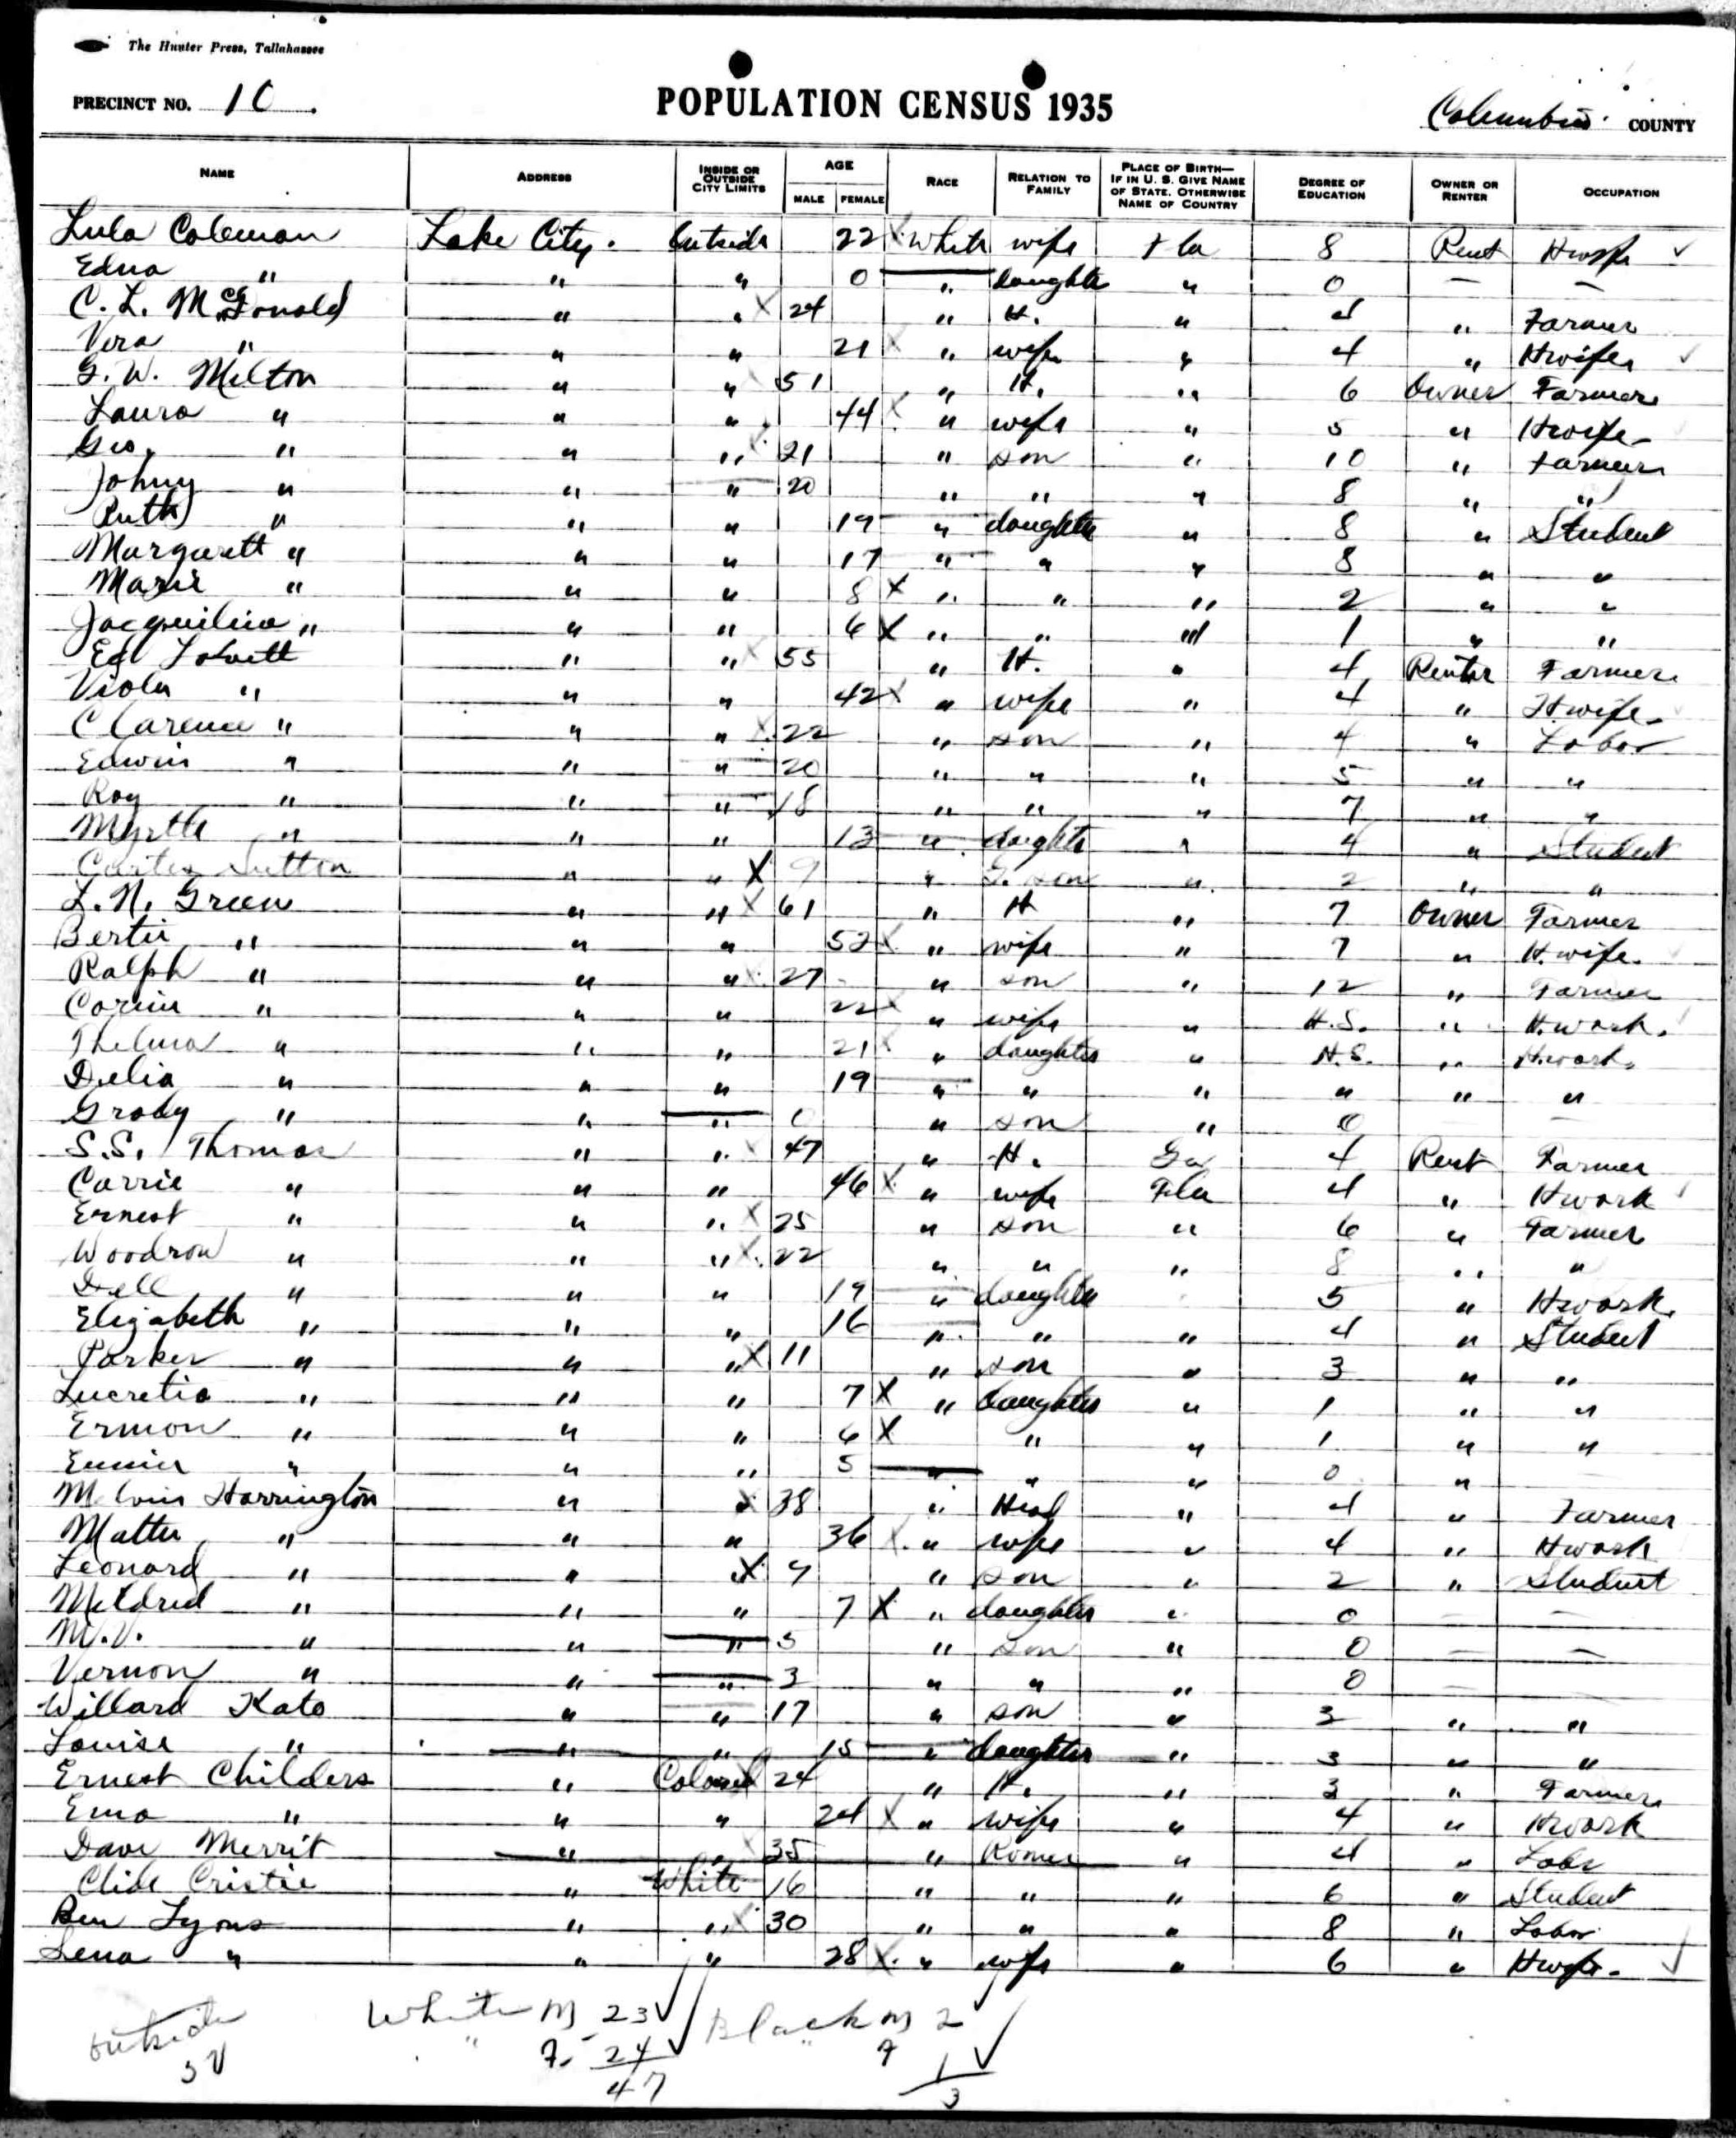 The Hunter Press, Tallahassee
PRECINCT NO. 10. POPULATION CENSUS 1935 Columbia COUNTY
NAME ADDRESS INSIDE OR OUTSIDE CITY LIMITS AGE MALE FEMALE RACE RELATION TO FAMILY PLACE OF BIRTH— IF IN U. S. GIVE NAME OF STATE, OTHERWISE NAME OF COUNTRY DEGREE OF EDUCATION OWNER OR RENTER OCCUPATION
Lula Coleman Lake City. Outside 22 X White wife Fla 8 Rent Hwife ✓
Edna " " " 0 " daughter " 0 — —
C. L. McDonald " " X 24 " H. " 4 " Farmer
Vera " " " 21 X " wife " 4 " Hwife ✓
G. W. Melton " " X 51 " H. " 6 Owner Farmer
Laura " " " 44 X " wife " 5 " Hwife
Geo. " " " X 21 " son " 10 " Farmer
Johny " " " 20 " " " 8 " "
Ruth " " " 19 " daughter " 8 " Student
Margarett " " " 17 " " " 8 " "
Marie " " " 8 X " " " 2 " "
Jacquilina " " " 6 X " " " 1 " "
Ed " " X 55 " H. " 4 Renter Farmer
Viola " " " 42 X " wife " 4 " H.wife
Clarence " " " X 22 " son " 4 " Labor
Edwin " " " 20 " " " 5 " "
Roy " " " 18 " " " 7 " "
Myrtle " " " 13 " daughter " 4 " Student
Carter Sutton " " X 9 " G. son " 2 " "
L. N. Green " " X 61 " H " 7 Owner Farmer
Bertie " " " 52 X " wife " 7 " H.wife.
Ralph " " " X 27 " son " 12 " Farmer
Corine " " " 22 X " wife " H.S. " H.work.
Thelma " " " 21 X " daughter " H.S. " H.work.
Delia " " " 19 " " " " " "
Grady " " " 0 " son " 0 —
S.S. Thomas " " X 47 " H. Ga 4 Rent Farmer
Carrie " " " 46 X " wife Fla 4 " Hwork
Ernest " " " X 25 " son " 6 " Farmer
Woodrow " " " X 22 " " " 8 " "
Dell " " " 19 " daughter 5 " Hwork.
Elizabeth " " " 16 " " " 4 " Student
Parker " " " X 11 " son " 3 " "
Lucretia " " " 7 X " daughter " 1 " "
Ermon " " " 6 X " " 1 " "
Eunice " " " 5 " " " 0 "
Melvin Harrington " X 38 " Head " 4 " Farmer
Mattie " " " 36 X " wife " 4 " Hwork
Leonard " " X 9 " son " 2 " Student
Mildred " " " 7 X " daughter " 0 — —
M.V. " " " 5 " son " 0 — —
Vernon " " " 3 " " " 0
Willard Kato " " 17 " son " 3 " "
Louise " " " 15 " daughter " 3 " "
Ernest Childers " Colored X 24 " H. " 3 " Farmer
Ema " " " 24 X " wife " 4 " Hwork
Dave Merrit " " X 35 " Romer " 4 " Labr
Clide Cristie " White 16 " " " 6 " Student
Ben Lyons " " X 30 " " " 8 " Labor
Lena " " " 28 X " wife " 6 " Hwife. ✓
outside White M 23 ✓ Black M 2 ✓
" F. 24 ✓ " F 1 ✓
47 3